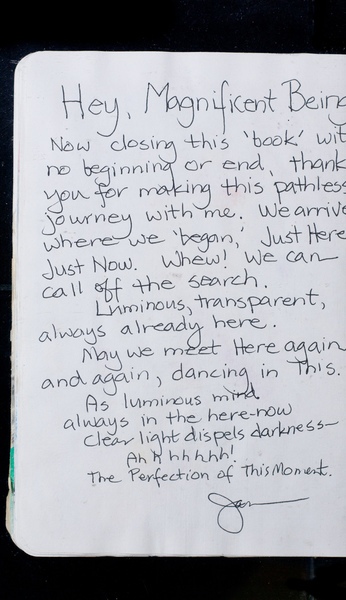 Hey, Magnificent Being
Now closing this 'book' wit
no beginning or end, thank
you for making this pathless
journey with me. We arrive
where we 'began,' Just Here
Just Now. Whew! We can
call off the search.
Luminous, transparent,
always already here.
May we meet Here again
and again, dancing in This.
As luminous mind
always in the here-now
Clear light dispels darkness—
Ah h hhhhh!
The Perfection of This Moment.
Jan